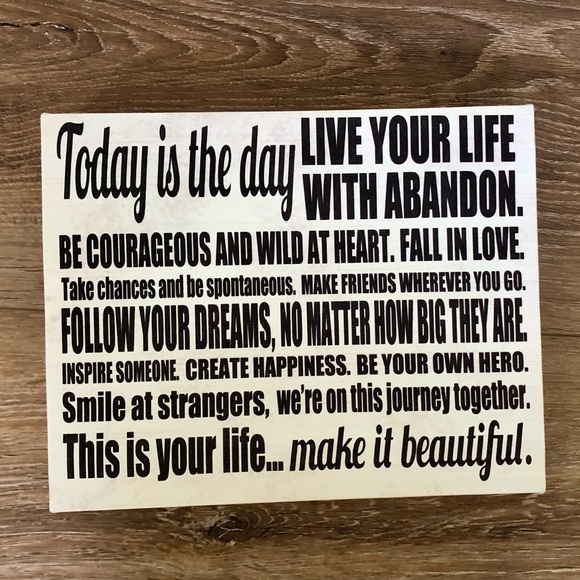 Today is the day LIVE YOUR LIFE
WITH ABANDON.
BE COURAGEOUS AND WILD AT HEART. FALL IN LOVE.
Take chances and be spontaneous. MAKE FRIENDS WHEREVER YOU GO.
FOLLOW YOUR DREAMS, NO MATTER HOW BIG THEY ARE.
INSPIRE SOMEONE. CREATE HAPPINESS. BE YOUR OWN HERO.
Smile at strangers, we're on this journey together.
This is your life... make it beautiful.